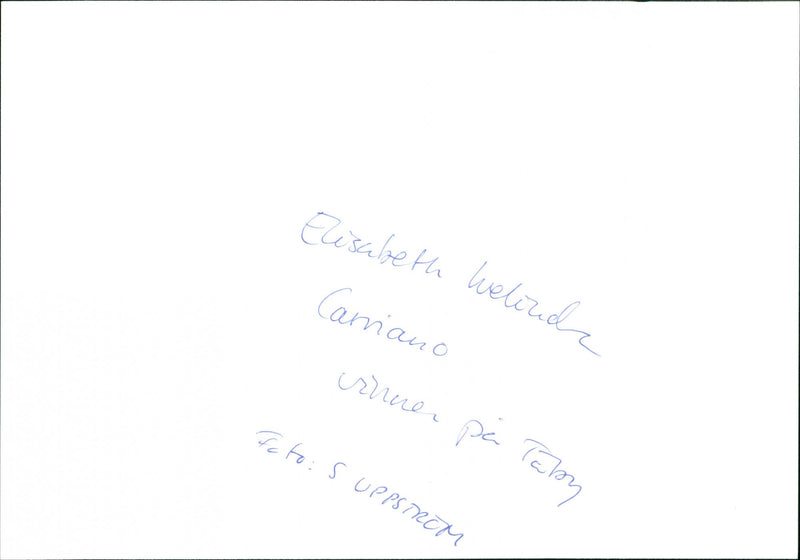 Elisabeth Welinder
Carriano
vinner på Täby
Foto: S UPPSTRÖM